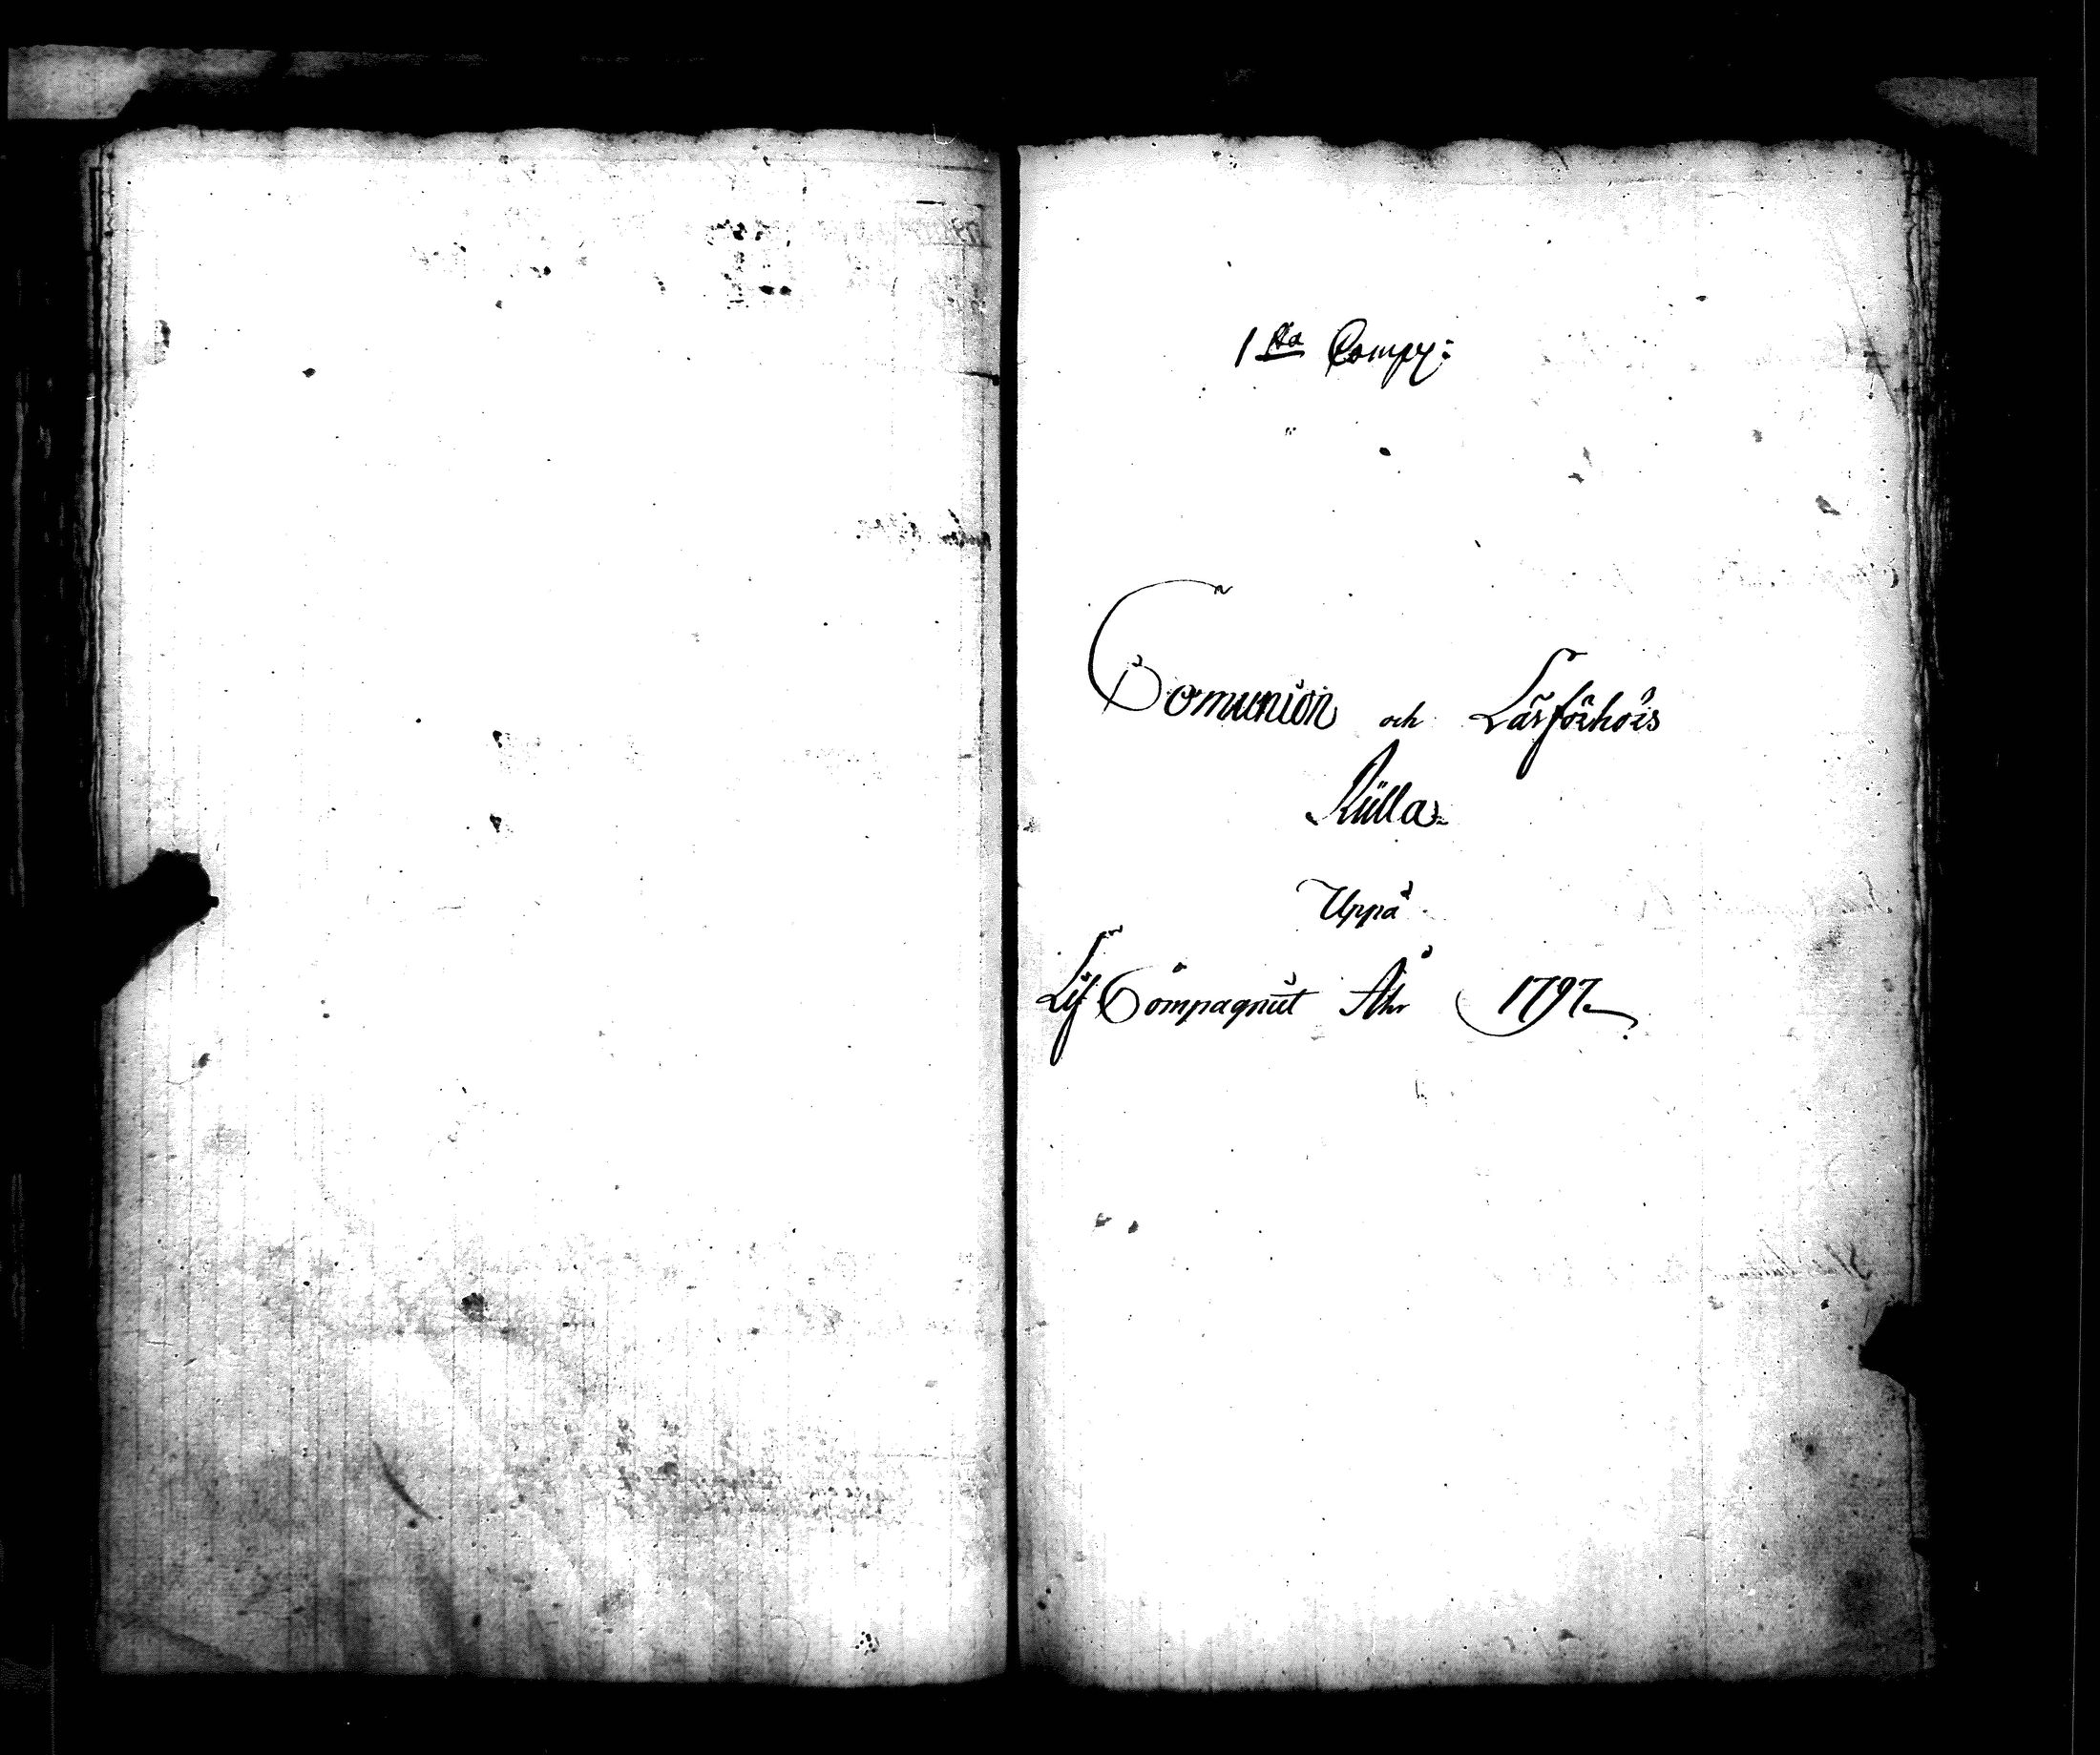 1sta Comp:
Communion och Läsförhörs
Rulla
Uppå
Lif Compagniet Åhr 1797